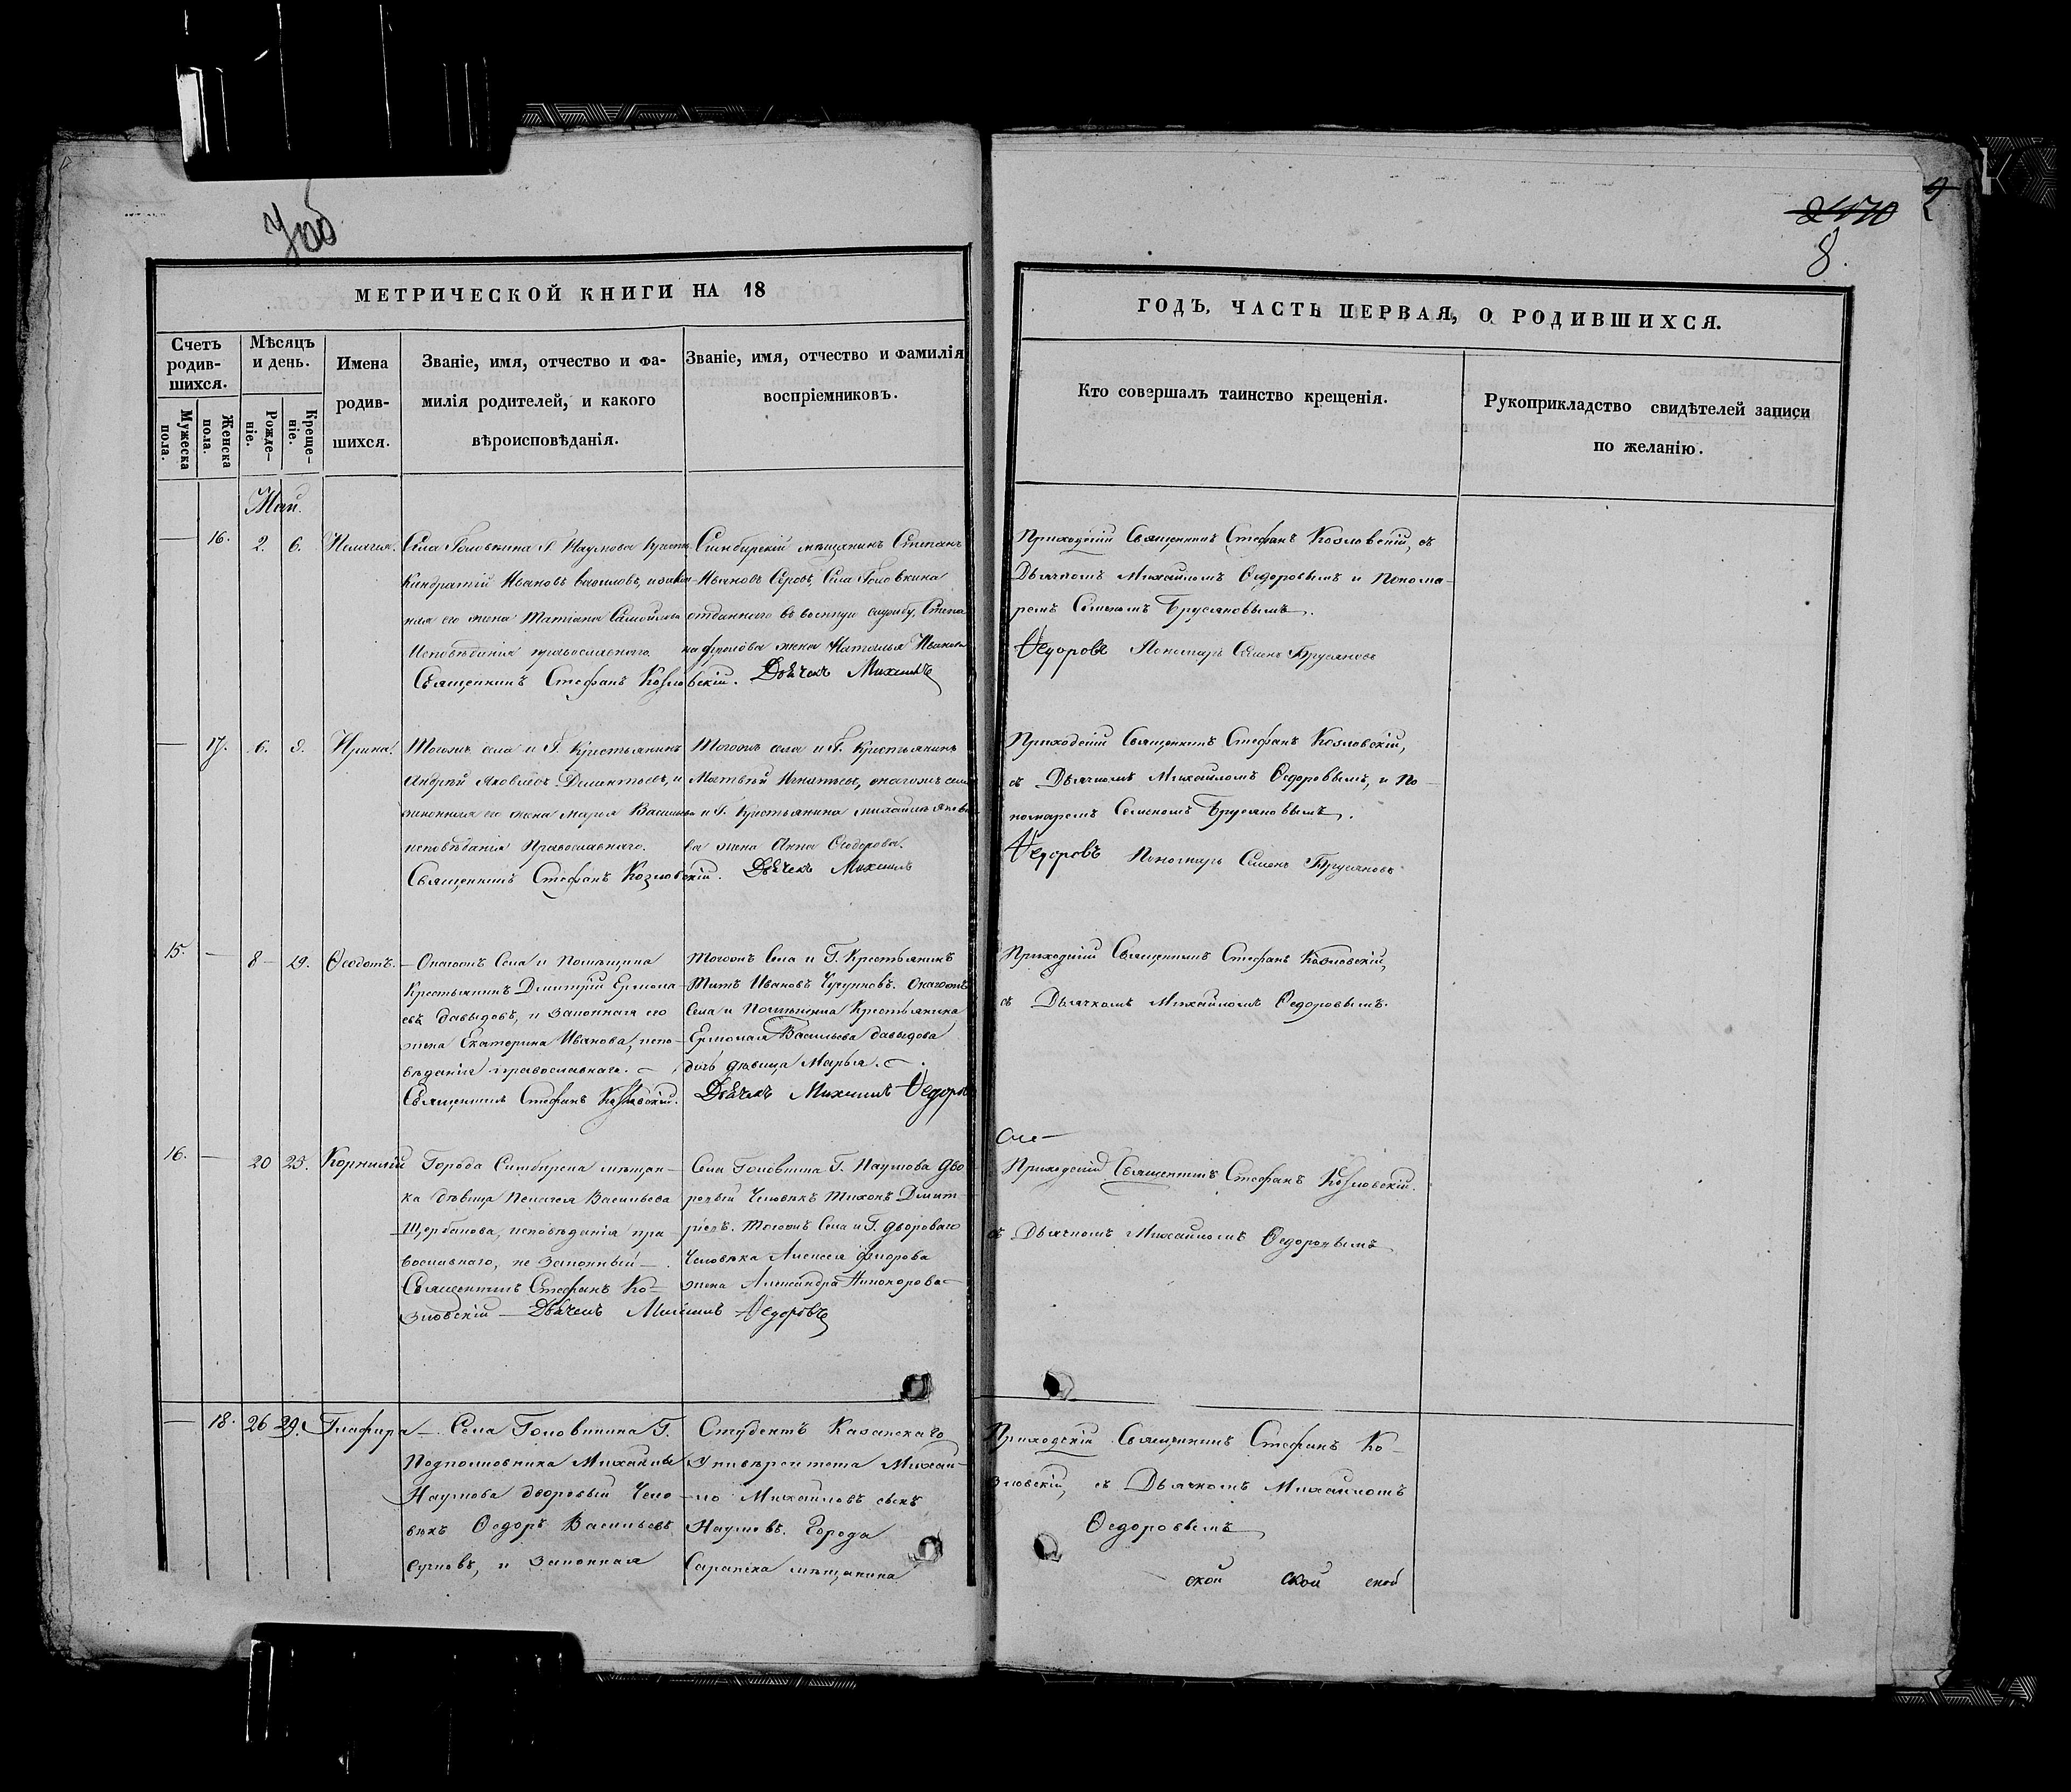 Уаб
2470
8.
МЕТРИЧЕСКОЙ КНИГИ НА 18
ГОДЪ, ЧАСТЬ ПЕРВАЯ, О РОДИВШИХСЯ.
Счетъ родив-шихся.
Мужеска пола.
Женска пола.
Мѣсяцъ и день.
Рожде-ніе.
Креще-ніе.
Имена родив-шихся.
Званіе, имя, отчество и фа-
милія родителей, и какого
вѣроисповѣданія.
Званіе, имя, отчество и фамилія
воспріемниковъ.
Кто совершалъ таинство крещенія.
Рукоприкладство свидѣтелей записи
по желанію.
Май.
— 16. 2. 6. Пелагея.
Села Головкина Г. Наумова
Кандратій Ивановъ
его жена Татіана Самойлова
Исповѣданія православнаго.
Симбирскій мѣщанинъ Степанъ
Ивановъ Серовъ, Села Головкина
отданнаго въ военную службу, Степа
на Фролова жена Наталья Иванова
Священникъ Стефанъ Козловскій. Дьячекъ Михаилъ
Приходскій Священникъ Стефанъ Козловскій, съ
Дьячкомъ Михайломъ Ѳедоровымъ и Понома-
ремъ Семеномъ Брусяновымъ.
Ѳедоровъ Пономарь Семенъ Брусяновъ
— 17. 6. 9. Ирина.
Тогожъ села и Г. Крестьянинъ
Андрей Яковлевъ Дементьевъ, и
законная его жена Марья Васильева
исповѣданія Православнаго.
Тогожъ села и Г. Крестьянинъ
Матвѣй Игнатьевъ, онагожъ села
и Г. Крестьянина михаила яковле
ва жена Анна Ѳедорова.
Священникъ Стефанъ Козловскій. Дьячекъ Михаилъ
Приходскій Священникъ Стефанъ Козловскій,
съ Дьячкомъ Михайломъ Ѳедоровымъ, и По-
номаремъ Семеномъ Брусяновымъ.
Ѳедоровъ Пономарь Семенъ Брусяновъ
15. — 8 — 29. Ѳеодотъ.
Онагожъ Села и Помѣщика
Крестьянинъ Дмитрій Ермола-
евъ Давыдовъ, и законная его
жена Екатерина Иванова, испо-
вѣданія православнаго.
Тогожъ Села и Г. Крестьянинъ
Титъ Ивановъ Чугуновъ. Онагожъ
Села и Помѣщика Крестьянина
Ермолая Васильева Давыдова
дочь дѣвица Марья.
Священникъ Стефанъ Козловскій. Дьячекъ Михаилъ Ѳедоровъ
Приходскій Священникъ Стефанъ Козловскій,
съ Дьячкомъ Михайломъ Ѳедоровымъ.
16. — 20 25. Корнилій
Города Симбирска мѣщан-
ка дѣвица Пелагея Васильева
Щербакова, исповѣданія пра
вославнаго, не законный —.
Священникъ Стефанъ Ко-
зловскій — Дьячекъ Михаилъ Ѳедоровъ
Села Головкина Г. Наумова дво
ровый Человѣкъ Тихонъ Дмит-
ріевъ. Тогожъ Села и Г. дворового
Человѣка Алексея
жена Александра Никонорова
Приходскій Священникъ Стефанъ Козловскій.
съ Дьячкомъ Михайломъ Ѳедоровымъ
— 18. 26 29. Глафира —
Села Головкина Г.
Подполковника Михаила
Наумова дворовый Чело-
вѣкъ Ѳедоръ Васильевъ
и законная
Студентъ Казанскаго
Университета Михаи-
ло Михайловъ сынъ
Наумовъ. Города
Саранска мѣщанина
Приходскій Священникъ Стефанъ Ко-
зловскій, съ Дьячкомъ Михайломъ
Ѳедоровымъ
ской ской ской